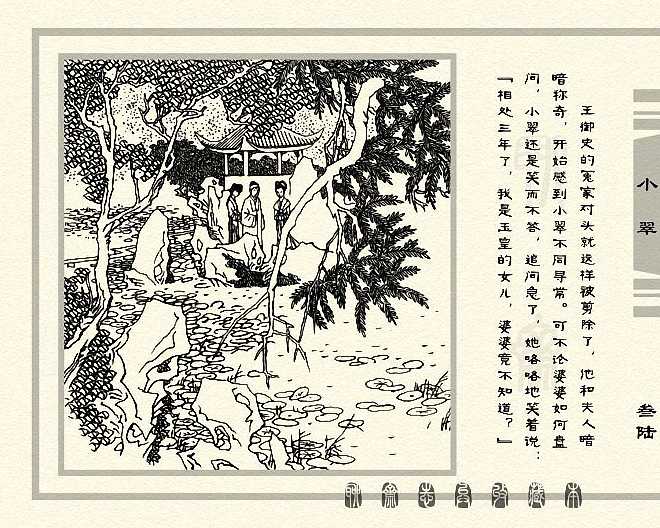 王御史的冤家对头就这样被剪除了，他和夫人暗
暗称奇，开始感到小翠不同寻常。可不论婆婆如何盘
问，小翠还是笑而不答，追问急了，她咯咯地笑着说：
“相处三年了，我是玉皇的女儿，婆婆竟不知道？”
小翠
叁陆
聊斋志异收藏本